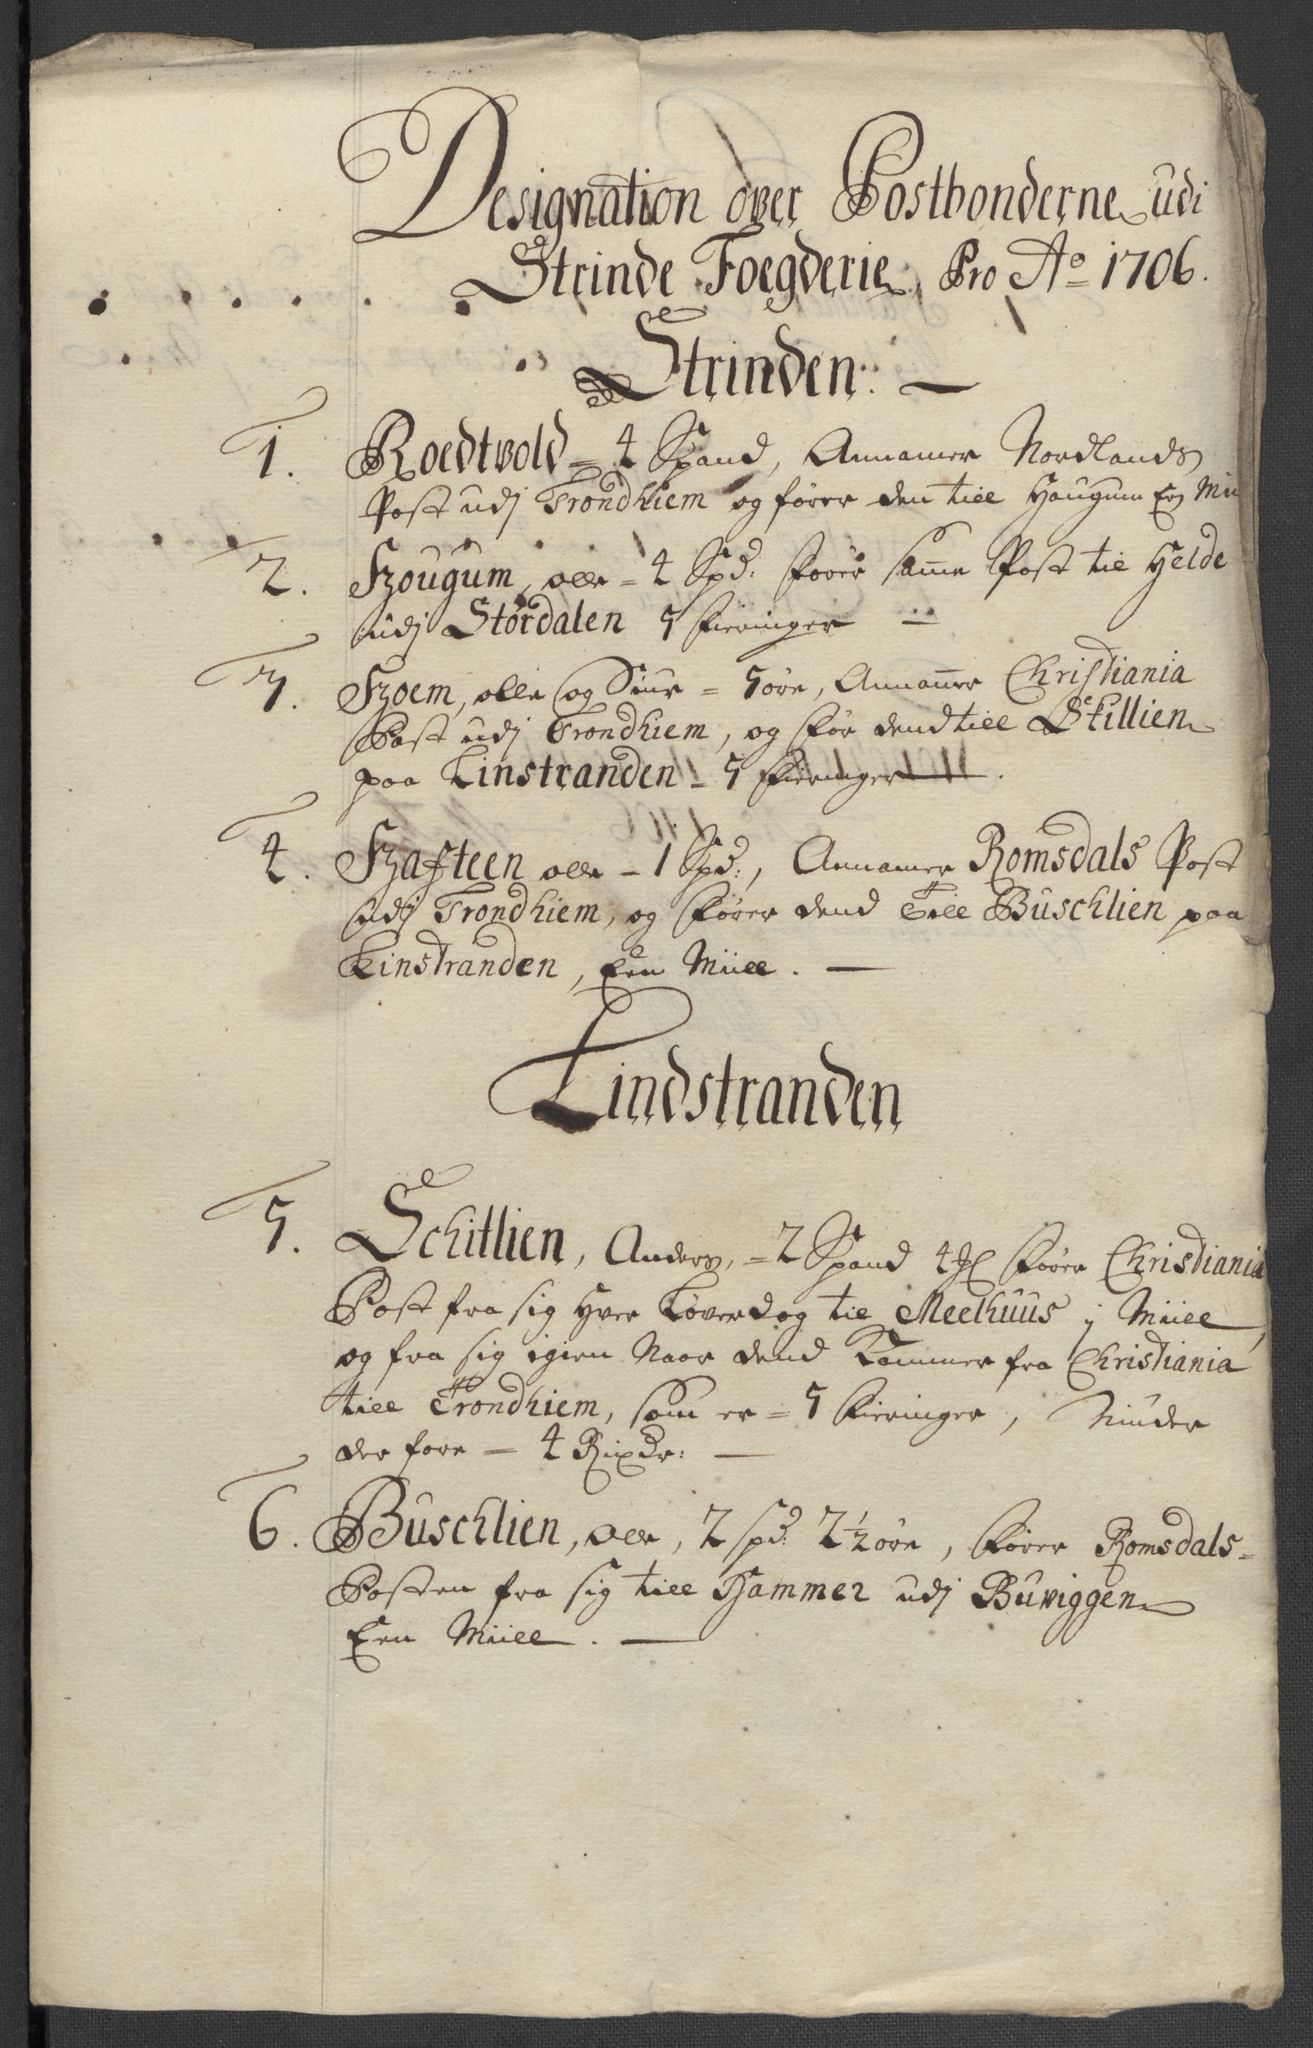 Designation over Postbonderne udi
Strinde Foegderie, Pro Ao 1706.
Strinden: —
1. Roedtvold = 4 Spand, Annamer Nordlands
Post udj Trondhiem og fører den till Haugum En Mil
2. Hougum, olle = 4 Spd: fører samme Post til Helde
udj Størdalen 5 fieringer —
3. Hoem, olle og Siur = 5 øre, Annammer Christiania
Post udj Trondhiem, og før dend till Skillien
paa Leinstranden = 5 fieringer.
4. Hafsteen olle – 1 Spd:, Annamer Romsdals Post
udj Trondhiem, og fører dend till Buschlien paa
Leinstranden, Een Miill. —
Leindstranden
5. Schitlien, Anders, = 2 Spand 4 fører Christiania
Post fra sig hver Løverdag til Meelhuus j Miill,
og fra sig igien Naar dend kommer fra Christiania
till Trondhiem, som er = 5 fieringer, Niuder
der fore — 4 Rixdr: —
6. Buschlien, olle, 2 spd: 2½ øre, fører Romsdals-
Posten fra sig till Hammer udj Buviggen
Een Miill. —